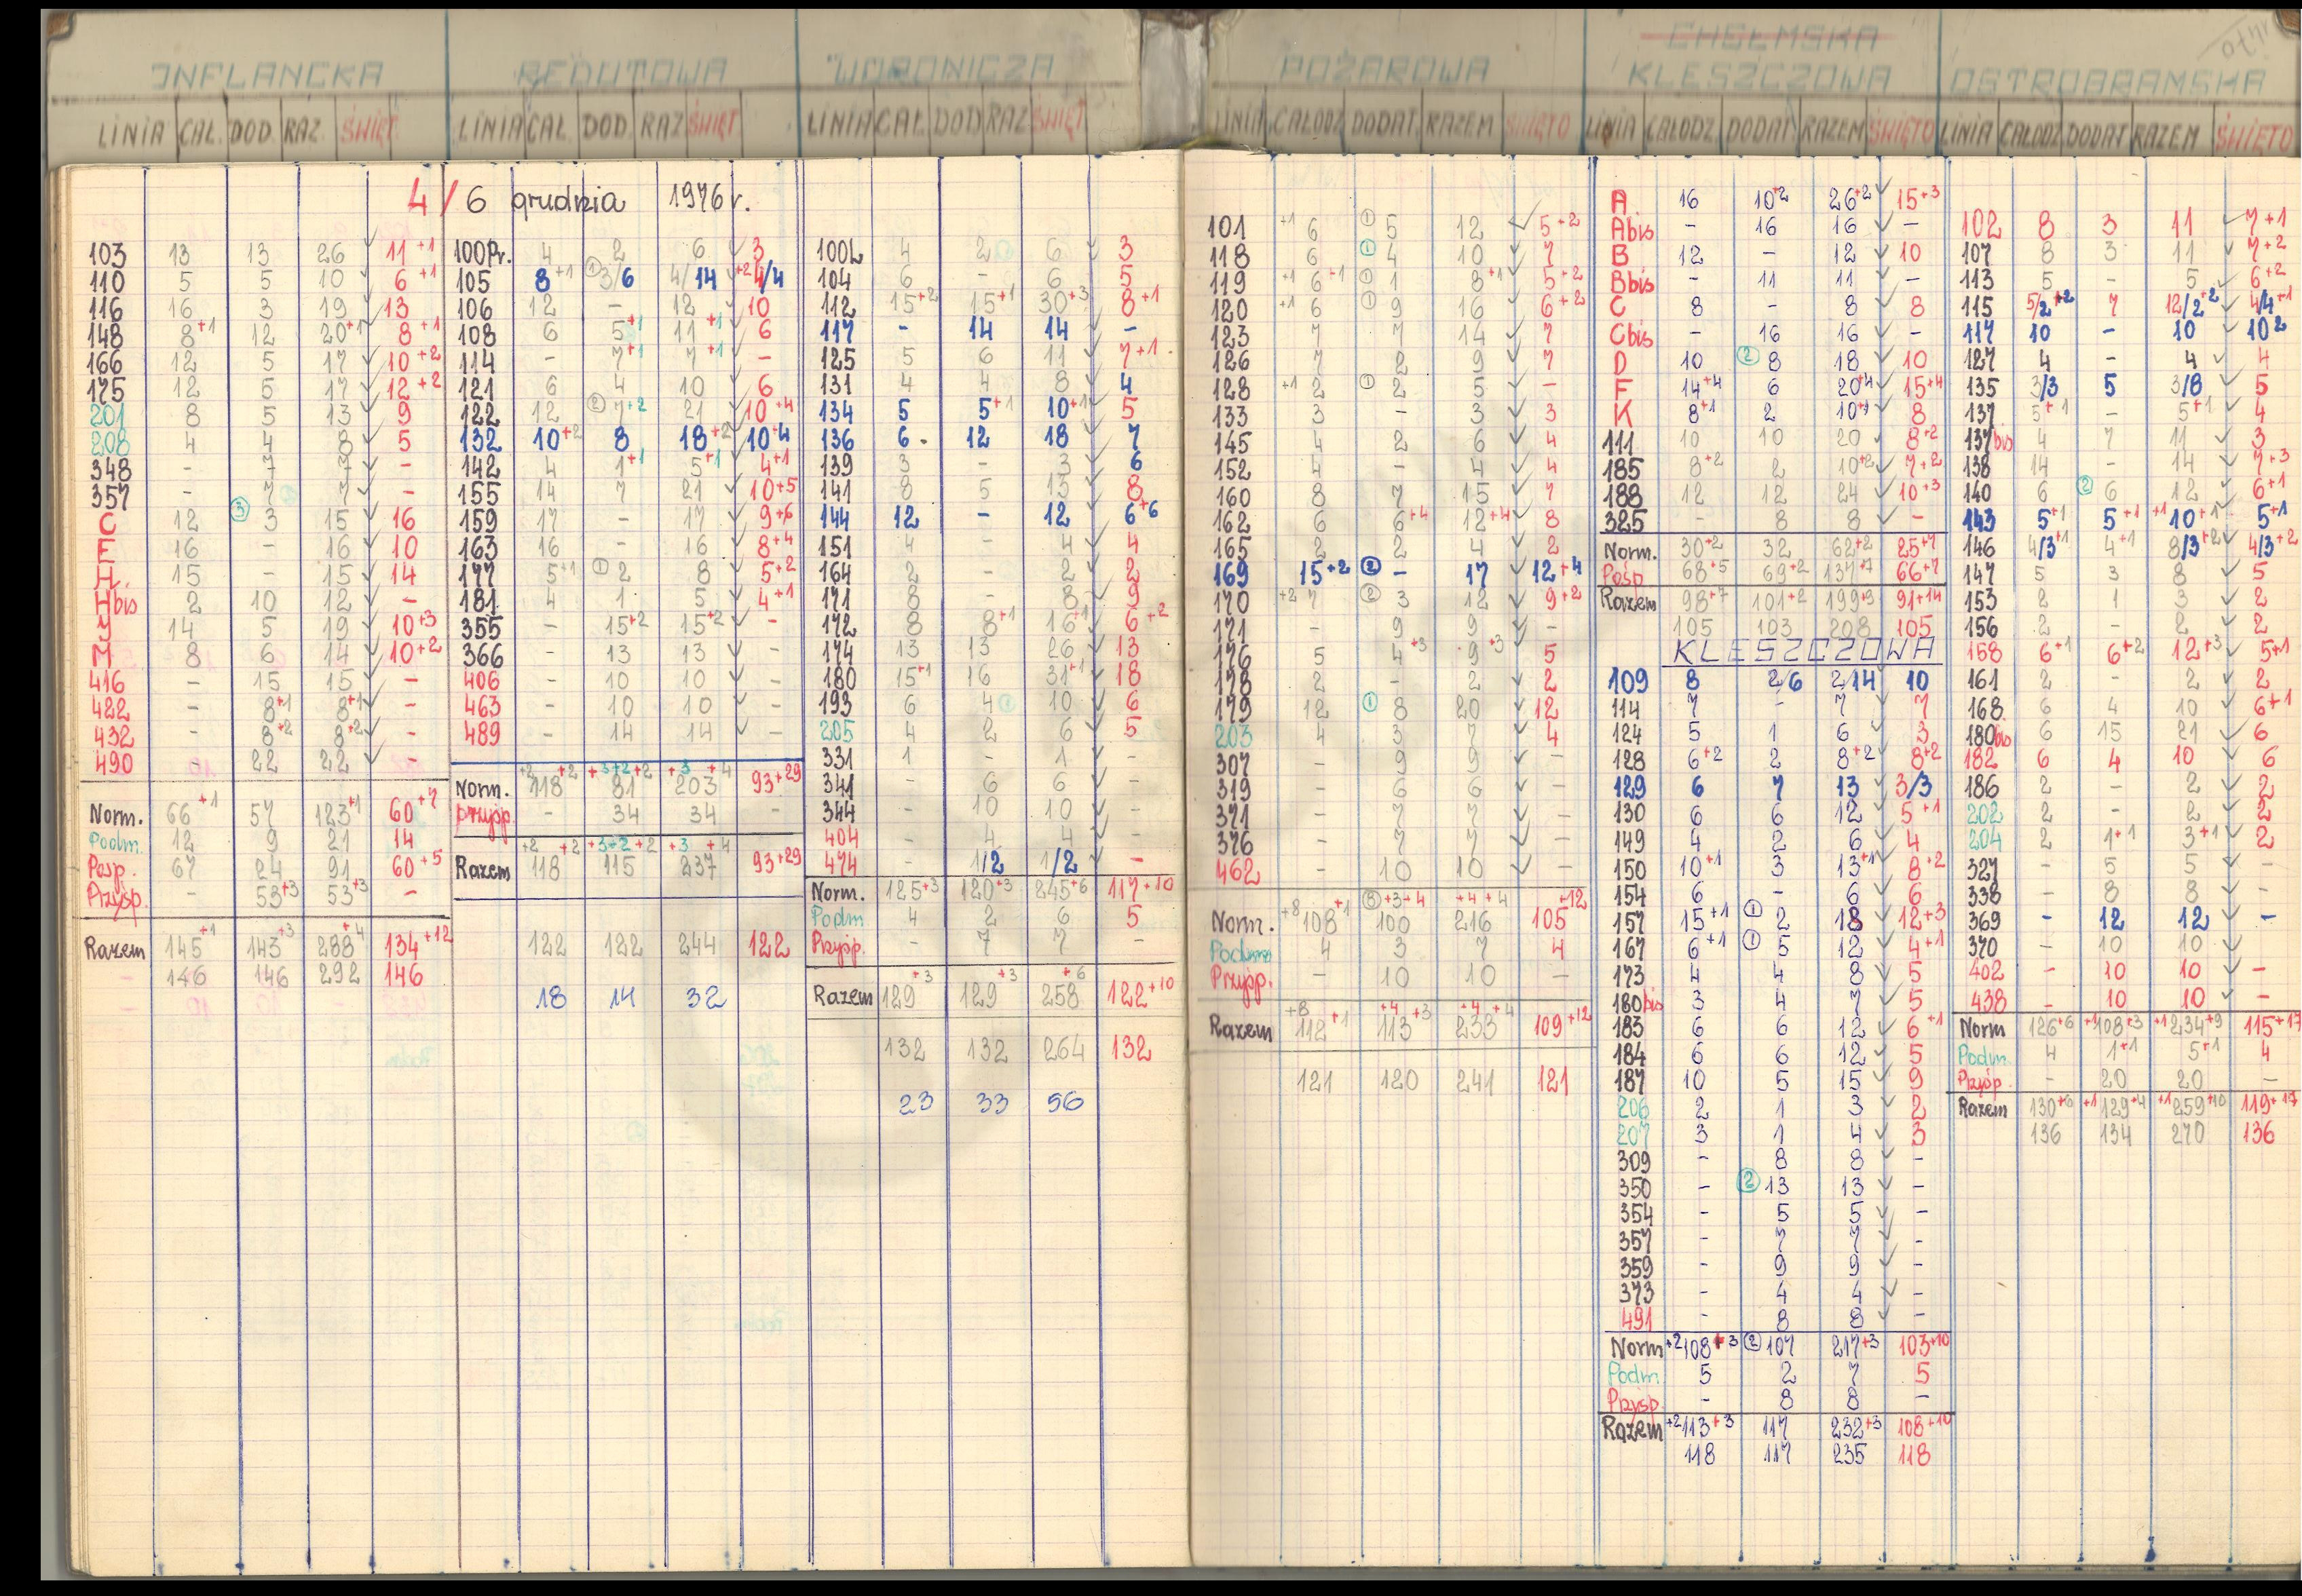 INFLANCKA
LINIA CAŁ. DOD. RAZ. ŚWIĘT.
103 13 13 26 11+1
110 5 5 10 6+1
116 16 3 19 13
148 8+1 12 20+1 8+1
166 12 5 17 10+2
175 12 5 17 12+2
201 8 5 13 9
208 4 4 8 5
348 - 7 7 -
357 - 7 7 -
C 12 ③ 3 15 16
E 16 - 16 10
H 15 - 15 14
Hbis 2 10 12 -
J 14 5 19 10+3
M 8 6 14 10+2
416 - 15 15 -
422 - 8+1 8+1 -
432 - 8+2 8+2 -
490 - 22 22 -
Norm. 66+1 57 123+1 60+7
Podm. 12 9 21 14
Posp. 67 24 91 60+5
Przysp. - 53+3 53+3 -
Razem 145+1 143+3 288+4 134+12
146 146 292 146
REDUTOWA
LINIA CAŁ. DOD. RAZ ŚWIĘT
4/6 grudnia 1976 r.
100Pr. 4 2 6 3
105 8+1 ① 3/6 4/14 +2 4/4
106 12 - 12 10
108 6 5+1 11+1 6
114 - 7+1 7+1 -
121 6 4 10 6
122 12 ② 7+2 21 10+4
132 10+2 8 18+2 10+4
142 4 1+1 5+1 4+1
155 14 7 21 10+5
159 17 - 17 9+6
163 16 - 16 8+4
177 5+1 ① 2 8 5+2
181 4 1 5 4+1
355 - 15+2 15+2 -
366 - 13 13 -
406 - 10 10 -
463 - 10 10 -
489 - 14 14 -
Norm. +2 118 +2 +3+2 81 +2 +3 203 +4 93+29
przysp. - 34 34 -
Razem +2 118 +2 +3+2 115 +2 +3 237 +4 93+29
122 122 244 122
18 14 32
WORONICZA
LINIA CAŁ DOD RAZ ŚWIĘT
100L 4 2 6 3
104 6 - 6 5
112 15+2 15+1 30+3 8+1
117 - 14 14 -
125 5 6 11 7+1
131 4 4 8 4
134 5 5+1 10+1 5
136 6 12 18 7
139 3 - 3 6
141 8 5 13 8
144 12 - 12 6+6
151 4 - 4 4
164 2 - 2 2
171 8 - 8 9
172 8 8+1 16+1 6+2
174 13 13 26 13
180 15+1 16 31+1 18
193 6 4 10 6
205 4 2 6 5
331 1 - 1 -
341 - 6 6 -
344 - 10 10 -
404 - 4 4 -
474 - 1/2 1/2 -
Norm. 125+3 120+3 245+6 117+10
Podm 4 2 6 5
Przysp. - 7 7 -
Razem 129+3 129+3 258+6 122+10
132 132 264 132
23 33 56
POŻAROWA
LINIA CAŁODZ DODAT. RAZEM ŚWIĘTO
101 +1 6 ① 5 12 5+2
118 6 ① 4 10 7
119 +1 6+1 ① 1 8+1 5+2
120 +1 6 ① 9 16 6+2
123 7 7 14 7
126 7 2 9 7
128 +1 2 ① 2 5 -
133 3 - 3 3
145 4 2 6 4
152 4 - 4 4
160 8 7 15 7
162 6 6+4 12+4 8
165 2 2 4 2
169 15+2 ② - 17 12+4
170 +2 7 ② 3 12 9+2
171 - 9 9 -
176 5 4+3 9+3 5
178 2 - 2 2
179 12 ① 8 20 12
203 4 3 7 4
307 - 9 9 -
319 - 6 6 -
371 - 7 7 -
376 - 7 7 -
462 - 10 10 -
Norm. +8 108+1 ⑧+3+4 100 +4+4 216 +12 105
Podm 4 3 7 4
Przysp. - 10 10 -
Razem +8 112+1 +4 113+3 +4 233+4 109+12
121 120 241 121
CHEŁMSKA
KLESZCZOWA
LINIA CAŁODZ DODAT. RAZEM ŚWIĘTO
A 16 10+2 26+2 15+3
Abis - 16 16 -
B 12 - 12 10
Bbis - 11 11 -
C 8 - 8 8
Cbis - 16 16 -
D 10 ② 8 18 10
F 14+4 6 20+4 15+4
K 8+1 2 10+1 8
111 10 10 20 8+2
185 8+2 2 10+2 7+2
188 12 12 24 10+3
325 - 8 8 -
Norm. 30+2 32 62+2 25+7
Posp 68+5 69+2 137+7 66+7
Razem 98+7 101+2 199+9 91+14
105 103 208 105
KLESZCZOWA
109 8 2/6 2/14 10
114 7 - 7 7
124 5 1 6 3
128 6+2 2 8+2 8+2
129 6 7 13 3/3
130 6 6 12 5+1
149 4 2 6 4
150 10+1 3 13+1 8+2
154 6 - 6 6
157 15+1 ① 2 18 12+3
167 6+1 ① 5 12 4+1
173 4 4 8 5
180bis 3 4 7 5
183 6 6 12 6+1
184 6 6 12 5
187 10 5 15 9
206 2 1 3 2
207 3 1 4 3
309 - 8 8 -
350 - ② 13 13 -
354 - 5 5 -
357 - 7 7 -
359 - 9 9 -
373 - 4 4 -
491 - 8 8 -
Norm +2 108+3 ② 107 217+3 103+10
Podm. 5 2 7 5
Przysp - 8 8 -
Razem +2 113+3 117 232+3 108+10
118 117 235 118
OSTROBRAMSKA
LINIA CAŁODZ DODAT RAZEM ŚWIĘTO
102 8 3 11 7+1
107 8 3 11 7+2
113 5 - 5 6+2
115 5/2+2 7 12/2+2 4/4+1
117 10 - 10 10 2
127 4 - 4 4
135 3/3 5 3/8 5
137 5+1 - 5+1 4
137bis 4 7 11 3
138 14 - 14 7+3
140 6 ② 6 12 6+1
143 5+1 5+1 +1 10+1 5+1
146 4/3+1 4+1 8/3+2 4/3+2
147 5 3 8 5
153 2 1 3 2
156 2 - 2 2
158 6+1 6+2 12+3 5+1
161 2 - 2 2
168 6 4 10 6+1
180bis 6 15 21 6
182 6 4 10 6
186 2 - 2 2
202 2 - 2 2
204 2 1+1 3+1 2
327 - 5 5 -
338 - 8 8 -
369 - 12 12 -
370 - 10 10 -
402 - 10 10 -
438 - 10 10 -
Norm 126+6 +1 108+3 +1 234+9 115+17
Podm. 4 1+1 5+1 4
Przysp. - 20 20 -
Razem 130+6 +1 129+4 +1 259+10 119+17
136 134 270 136